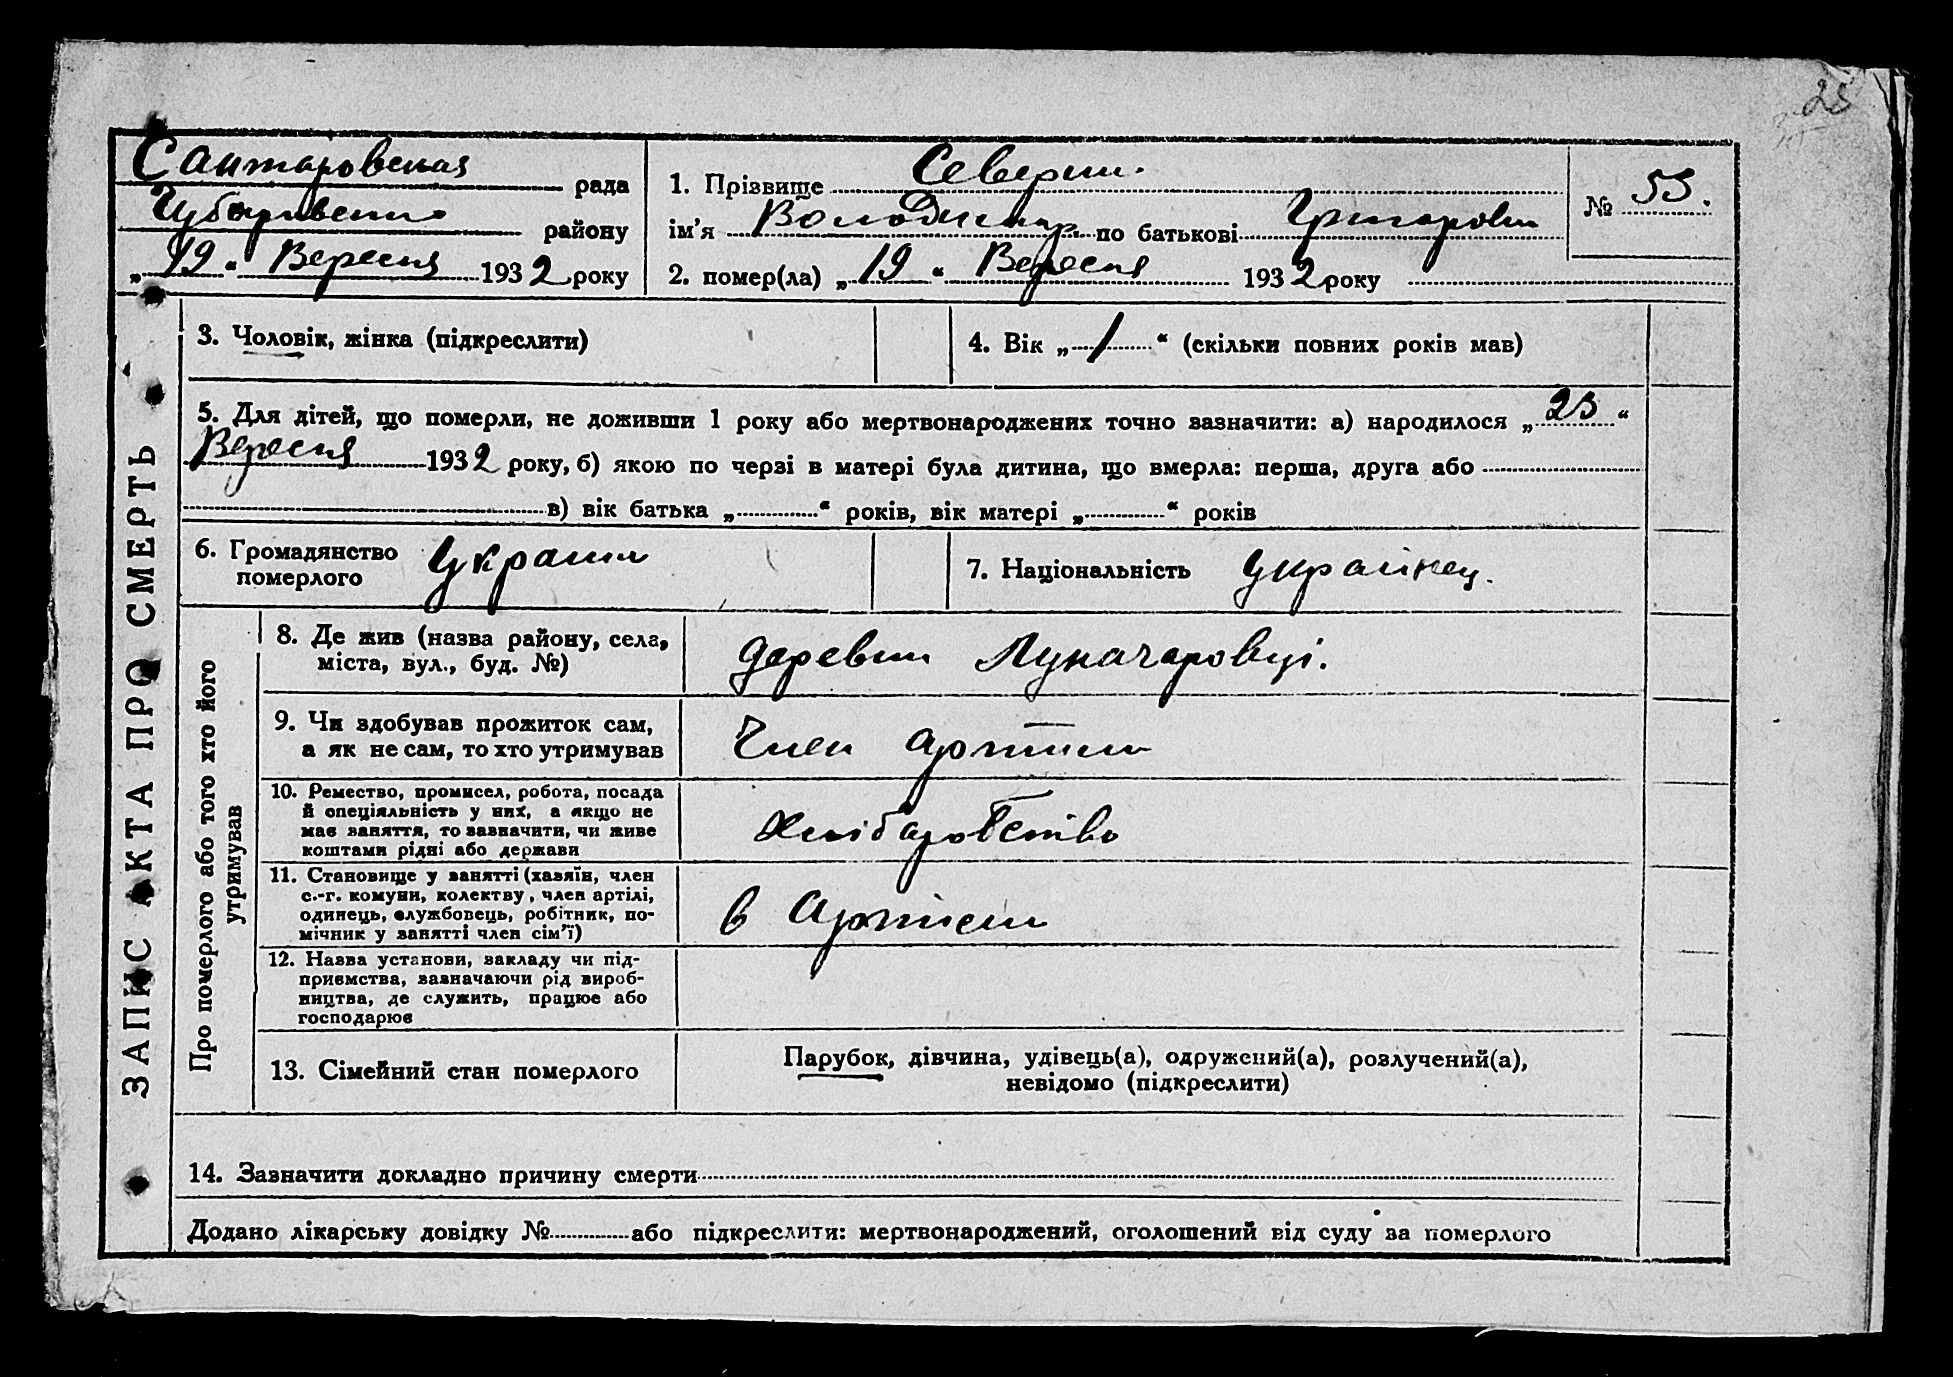 25
Сантаровская рада
Чубарівськи району
„19“ Вересня 1932 року
1. Прізвище Северин.
ім'я Володимир. по батькові Григорович
№ 53.
2. помер(ла) „19“ Вересня 1932 року
3. Чоловік, жінка (підкреслити)
4. Вік „1“ (скільки повних років мав)
5. Для дітей, що померли, не доживши 1 року або мертвонароджених точно зазначити: а) народилося „23“
Вересня 1932 року, б) якою по черзі в матері була дитина, що вмерла: перша, друга або
в) вік батька „ “ років, вік матері „ “ років
6. Громадянство
померлого
Украини
7. Національність украінец.
8. Де жив (назва району, села,
міста, вул., буд. №)
деревни Луначаровці.
9. Чи здобував прожиток сам,
а як не сам, то хто утримував
Член артили
10. Ремество, промисел, робота, посада
й спеціяльність у них, а якщо не
має заняття, то зазначити, чи живе
коштами рідні або держави
Хлібаробство
11. Становище у занятті (хазяїн, член
с.-г. комуни, колектву, член артілі,
одинець, службовець, робітник, по-
мічник у занятті член сім'ї)
в Артиели
12. Назва установи, закладу чи під-
приємства, зазначаючи рід вироб-
ництва, де служить, працює або
господарює
13. Сімейний стан померлого
Парубок, дівчина, удівець(а), одружений(а), розлучений(а),
невідомо (підкреслити)
14. Зазначити докладно причину смерти
Додано лікарську довідку № або підкреслити: мертвонароджений, оголошений від суду за померлого
ЗАПИС АКТА ПРО СМЕРТЬ
Про померлого або того хто його
утримував